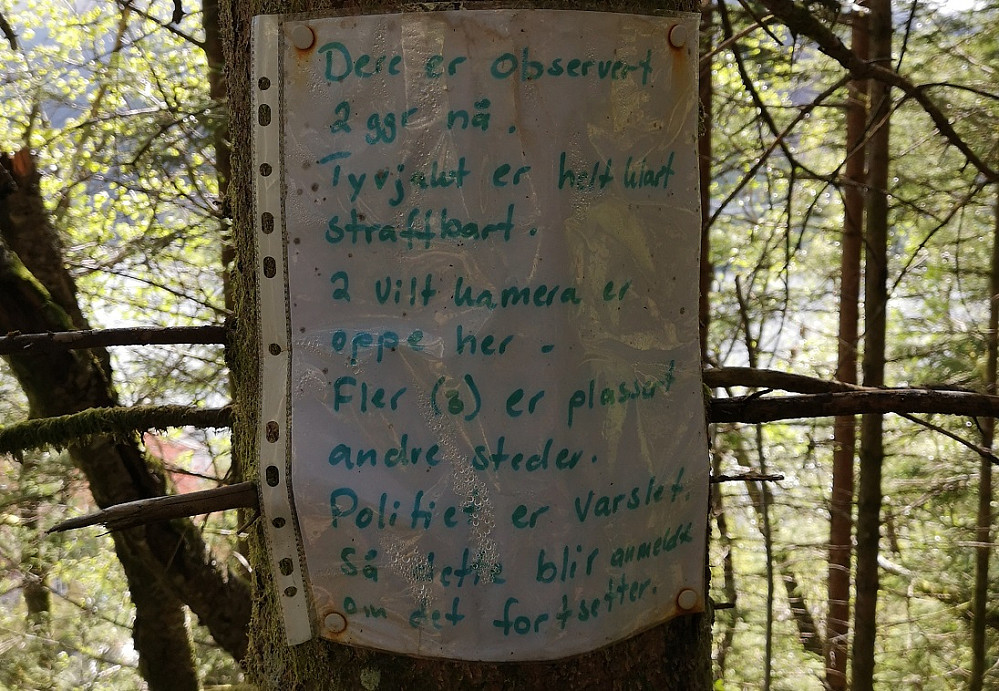 Dere er observert
2 ggr nå.
Tyvjakt er helt klart
straffbart.
2 vilt kamera er
oppe her.
Fler (3) er plassert
andre steder.
Politiet er varslet.
Så dette blir anmeldt
om det fortsetter.